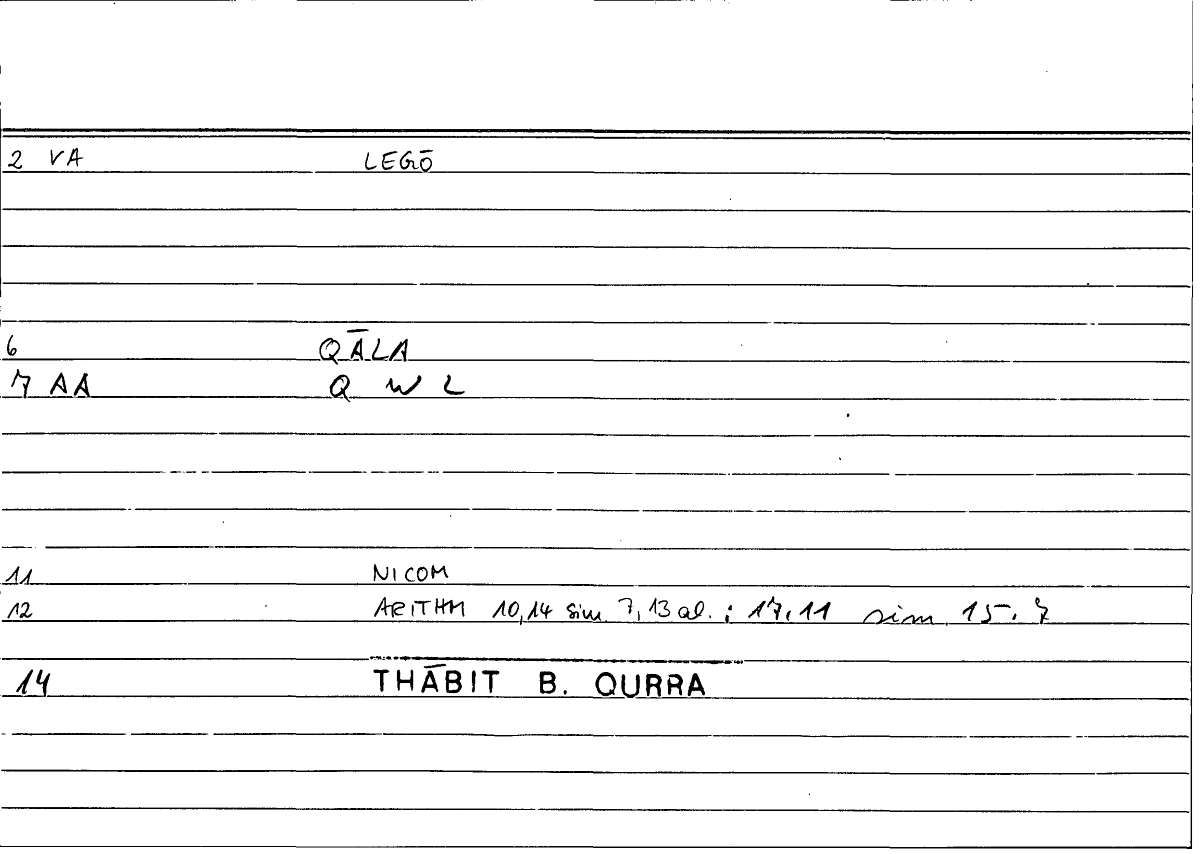 2 VA LEGŌ
6 QĀLA
7 AA Q W L
11 NICOM
12 ARITHM 10,14 sim 7,13 al. ; 17.11 sim 15.7
14 THĀBIT B. QURRA